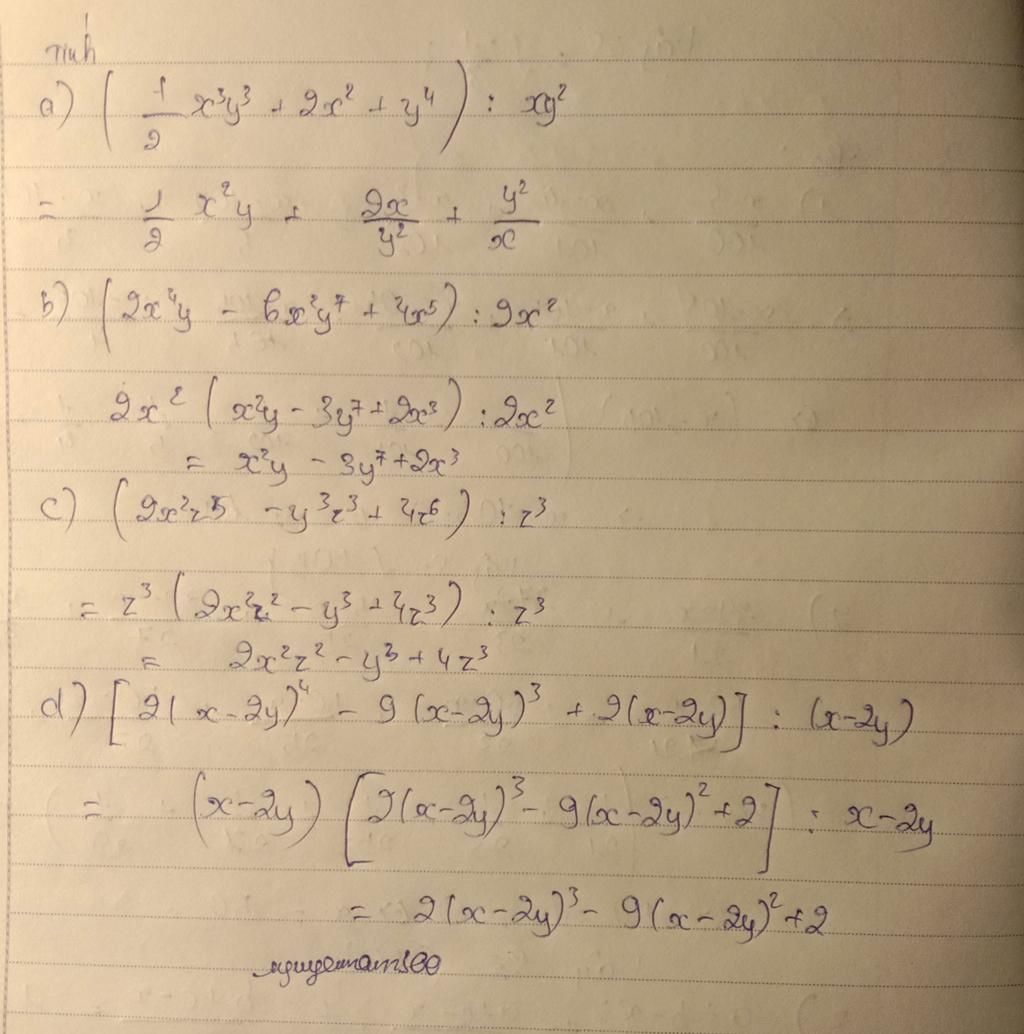 Tính
a) ( 1/2 x³y³ + 2x² + y⁴ ) : xy²
= 1/2 x²y + 2x/y² + y²/x
b) ( 2x⁴y - 6x²y⁷ + 4x⁵ ) : 2x²
2x² ( x²y - 3y⁷ + 2x³ ) : 2x²
= x²y - 3y⁷ + 2x³
c) ( 2x²z⁵ - y³z³ + 4z⁶ ) : z³
= z³ ( 2x²z² - y³ + 4z³ ) : z³
= 2x²z² - y³ + 4z³
d) [ 2( x-2y )⁴ - 9 (x-2y)³ + 2(x-2y) ] : (x-2y)
= (x-2y) [ 2(x-2y)³ - 9(x-2y)² + 2 ] : x-2y
= 2(x-2y)³ - 9(x-2y)² + 2